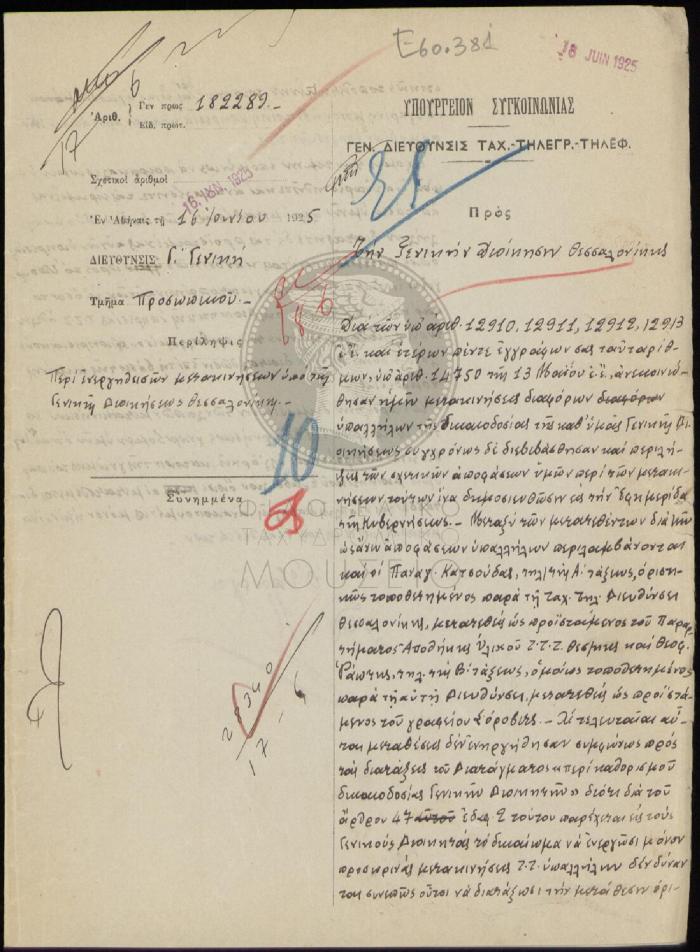 Ε60.381
18 JUIN 1925
Ἀριθ. Γεν πρωτ 182289.-
Εἰδ. πρωτ.
17 6
ΥΠΟΥΡΓΕΙΟΝ ΣΥΓΚΟΙΝΩΝΙΑΣ
ΓΕΝ. ΔΙΕΥΘΥΝΣΙΣ ΤΑΧ.-ΤΗΛΕΓΡ.-ΤΗΛΕΦ.
Σχετικοὶ ἀριθμοὶ
16. ΙΟΥΝ. 1925
Ἐν Ἀθήναις τῇ 16 Ἰουνίου 1925
Πρὸς
ΔΙΕΥΘΥΝΣΙΣ Γ. Γενικὴ
Τὴν Γενικὴν Διοίκησιν Θεσσαλονίκης
Τμῆμα Προσωπικοῦ.-
18 6
Περίληψις
Περὶ ἐνεργηθεισῶν μετακινήσεων ὑπὸ τῆς
Γενικῆς Διοικήσεως Θεσσαλονίκης.-
10
Συνημμένα
Διὰ τῶν ὑπ' ἀριθ. 12910, 12911, 12912, 12913
ἐ.ἔ. καὶ ἑτέρων πέντε ἐγγράφων σας ταυταρίθ-
μων, ὑπ' ἀριθ. 14750 τῆς 13 Μαΐου ἐ.ἔ, ἀνεκοινώ-
θησαν ἡμῖν μετακινήσεις διαφόρων διαφόρων
ὑπαλλήλων τῆς δικαιοδοσίας τῆς καθ' ὑμᾶς Γενικῆς Δι-
οικήσεως συγχρόνως δὲ διεβιβάσθησαν καὶ περιλή-
ψεις τῶν σχετικῶν ἀποφάσεων ὑμῶν περὶ τῶν μετακι-
νήσεων τούτων ἵνα δημοσιευθῶσιν εἰς τὴν Ἐφημερίδα
τῆς Κυβερνήσεως.- Μεταξὺ τῶν μετατεθέντων διὰ τῶν
ὡς ἄνω ἀποφάσεων ὑπαλλήλων περιλαμβάνονται
καὶ οἱ Παναγ. Κατσούδας, τηλ/τὴς Α' τάξεως, ὁριστι-
κῶς τοποθετημένος παρὰ τῇ ταχ. τηλ. Διευθύνσει
Θεσσαλονίκης, μετατεθεὶς ὡς προϊστάμενος τοῦ Παραρ-
τήματος Ἀποθήκης Ὑλικοῦ Τ.Τ.Τ. Θεσ/νίκης καὶ Θεοφ.
τηλ. τῆς Β' τάξεως, ὁμοίως τοποθετημένος
παρὰ τῇ αὐτῇ Διευθύνσει, μετατεθεὶς ὡς προϊστά-
μενος τοῦ γραφείου Σόροβιτς.- Αἱ τελευταῖαι αὗ-
ται μεταθέσεις δὲν ἐνηργήθησαν συμφώνως πρὸς
τὰς διατάξεις τοῦ Διατάγματος «περὶ καθορισμοῦ
δικαιοδοσίας Γενικῶν Διοικητῶν» διότι διὰ τοῦ
ἄρθρου 47 αὐτοῦ ἐδαφ. 2 τούτου παρέχεται εἰς τοὺς
Γενικοὺς Διοικητὰς τὸ δικαίωμα νὰ ἐνεργῶσι μόνον
προσωρινὰς μετακινήσεις Τ.Τ. ὑπαλλήλων δὲν δύναν-
ται συνεπῶς οὗτοι νὰ διατάξωσι τὴν μετάθεσιν ὁρι-
28340
17-6
ΤΑΧΥΔΡΟΜΙΚΟ
ΜΟΥΣΕΙΟ